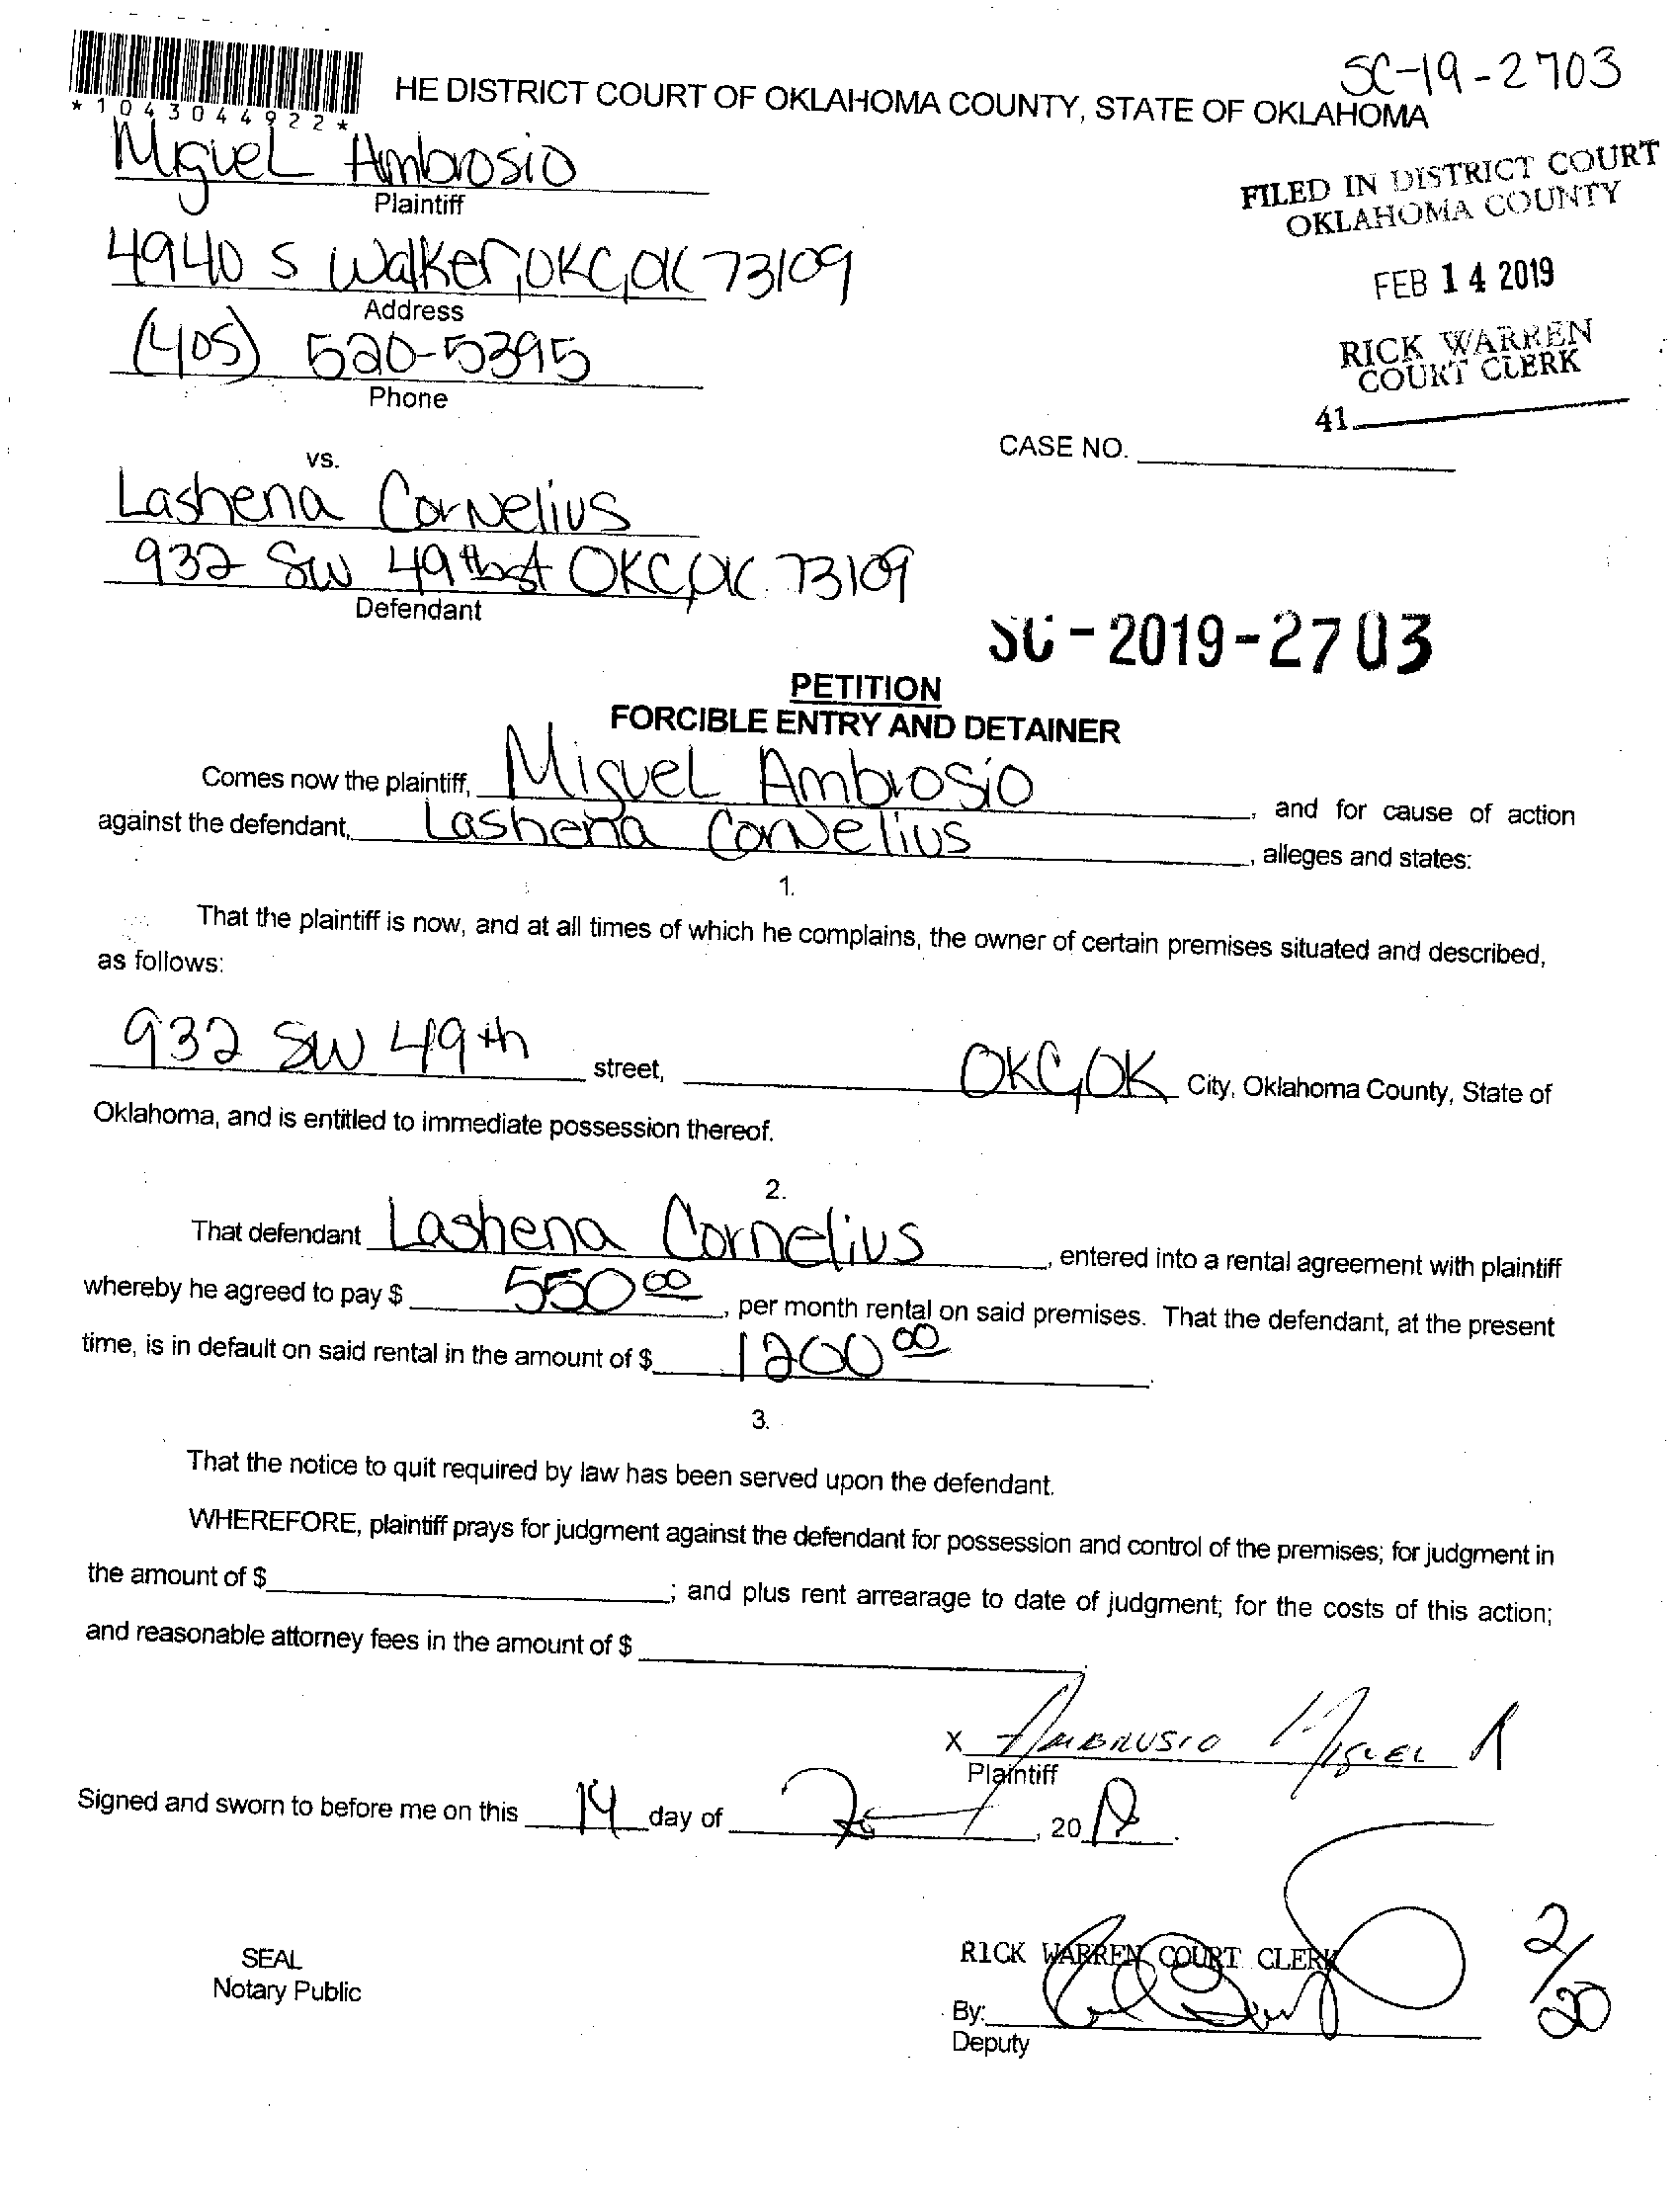 SC-19-2703
*1043044922*
HE DISTRICT COURT OF OKLAHOMA COUNTY, STATE OF OKLAHOMA
Miguel Ambrosio
Plaintiff
FILED IN DISTRICT COURT
OKLAHOMA COUNTY
4940 S Walker, OKC, OK 73109
Address
FEB 14 2019
(405) 520-5395
Phone
RICK WARREN
COURT CLERK
41
CASE NO.
vs.
Lashena Cornelius
932 SW 49th st OKC, OK 73109
Defendant
SC-2019-2703
PETITION
FORCIBLE ENTRY AND DETAINER
Comes now the plaintiff, Miguel Ambrosio, and for cause of action
against the defendant, Lashena Cornelius, alleges and states:
1.
That the plaintiff is now, and at all times of which he complains, the owner of certain premises situated and described,
as follows:
932 SW 49th street, OKC, OK City, Oklahoma County, State of
Oklahoma, and is entitled to immediate possession thereof.
2.
That defendant Lashena Cornelius, entered into a rental agreement with plaintiff
whereby he agreed to pay $ 550 00, per month rental on said premises. That the defendant, at the present
time, is in default on said rental in the amount of $ 1200 00.
3.
That the notice to quit required by law has been served upon the defendant.
WHEREFORE, plaintiff prays for judgment against the defendant for possession and control of the premises; for judgment in
the amount of $ ; and plus rent arrearage to date of judgment; for the costs of this action;
and reasonable attorney fees in the amount of $ .
X Ambrosio Miguel R
Plaintiff
Signed and sworn to before me on this 14 day of , 20 19.
RICK WARREN COURT CLERK
SEAL
Notary Public
By:
Deputy
2/20